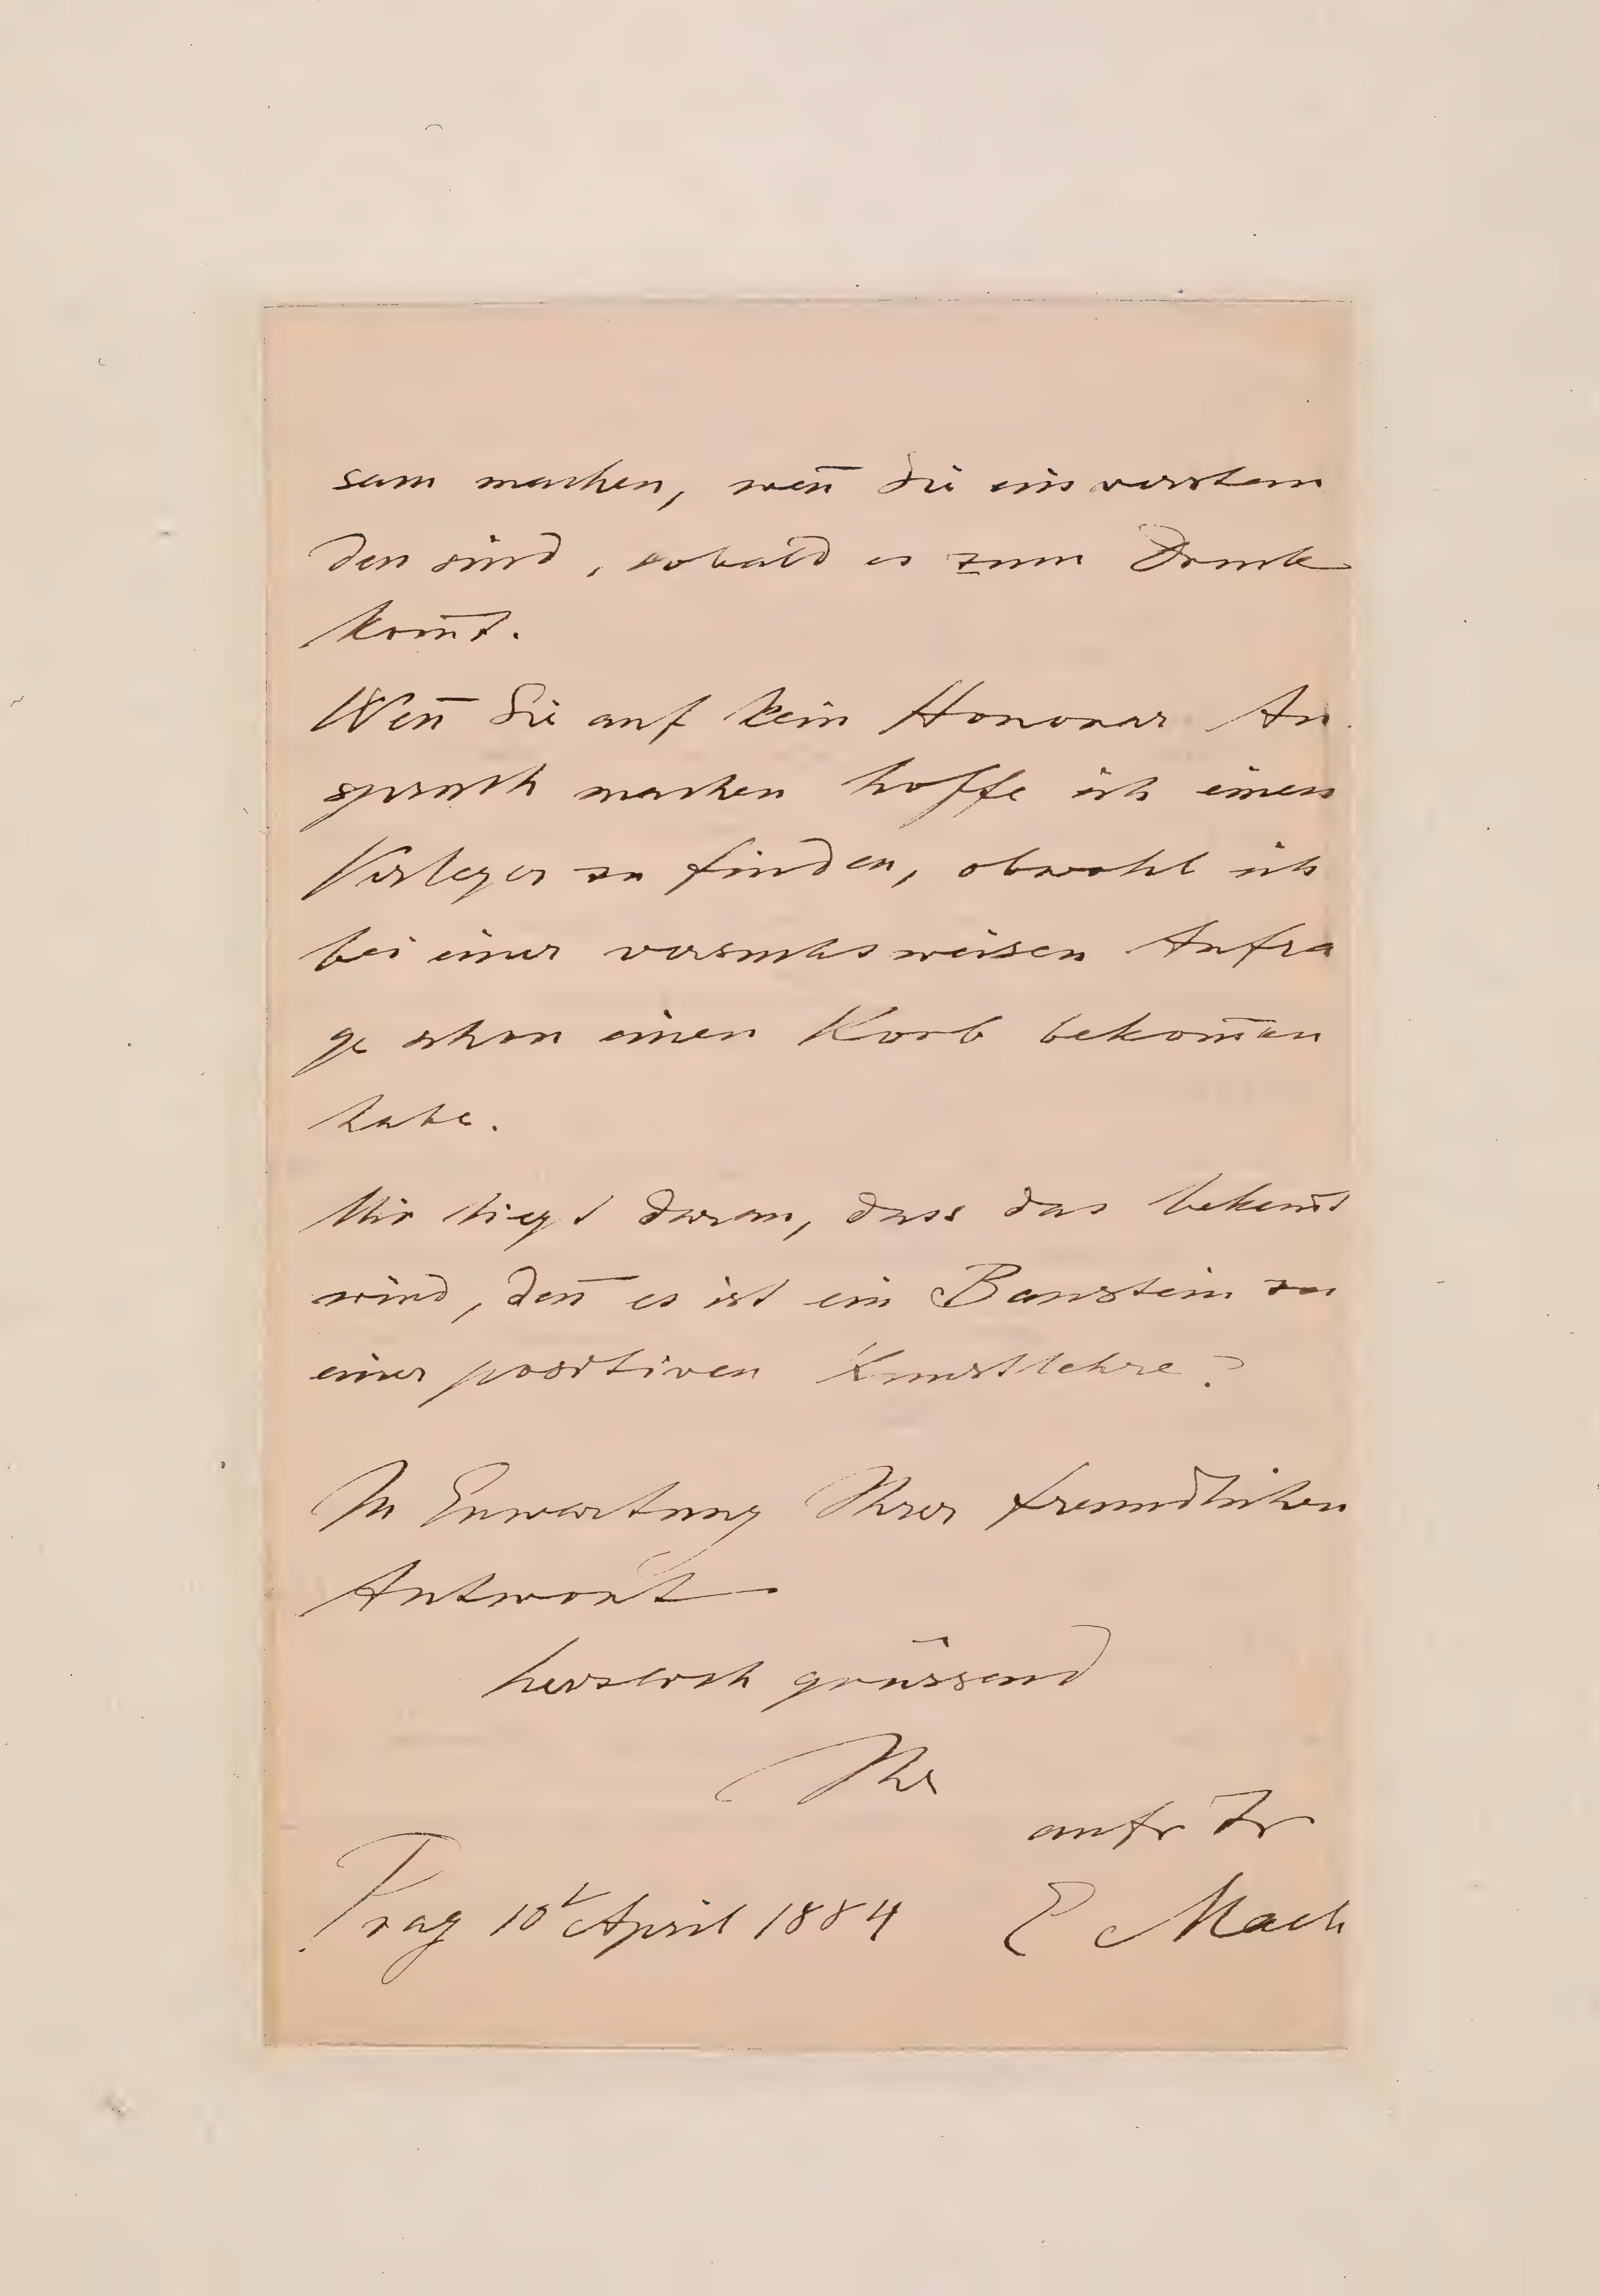 sam machen, weñ Sie einverstan
den sind, sobald es zum Druck
kom̄t.
Weñ Sie auf kein Honorar An
spruch machen hoffe ich einen
Verleger zu finden, obwohl ich
bei einer versuchsweisen Anfra
ge schon einen Korb bekom̄en
habe.
Mir liegt daran, dass das bekañt
wird, deñ es ist ein Baustein zu
einer positiven Kunstlehre?
In Erwartung Ihrer freundlichen
Antwort
herzlich grüssend
Ihr
aufr Fr
Prag 10t April 1884 E Mach